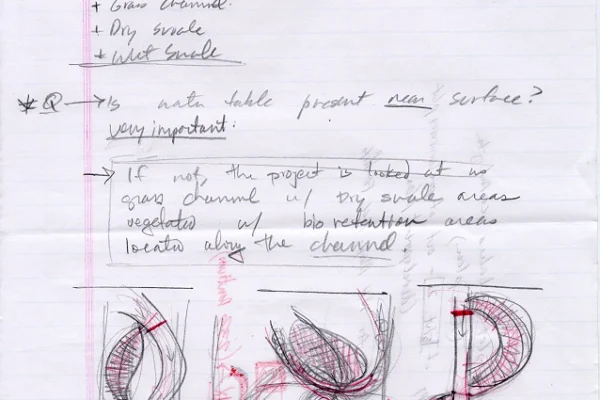 + Grass channel.
+ Dry swale
+ Wet Swale
* Q → Is water table present near surface?
very important:
→ If not, the project is looked at as
grass channel w/ Dry swales, areas
vegetated w/ bioretention areas
located along the channel